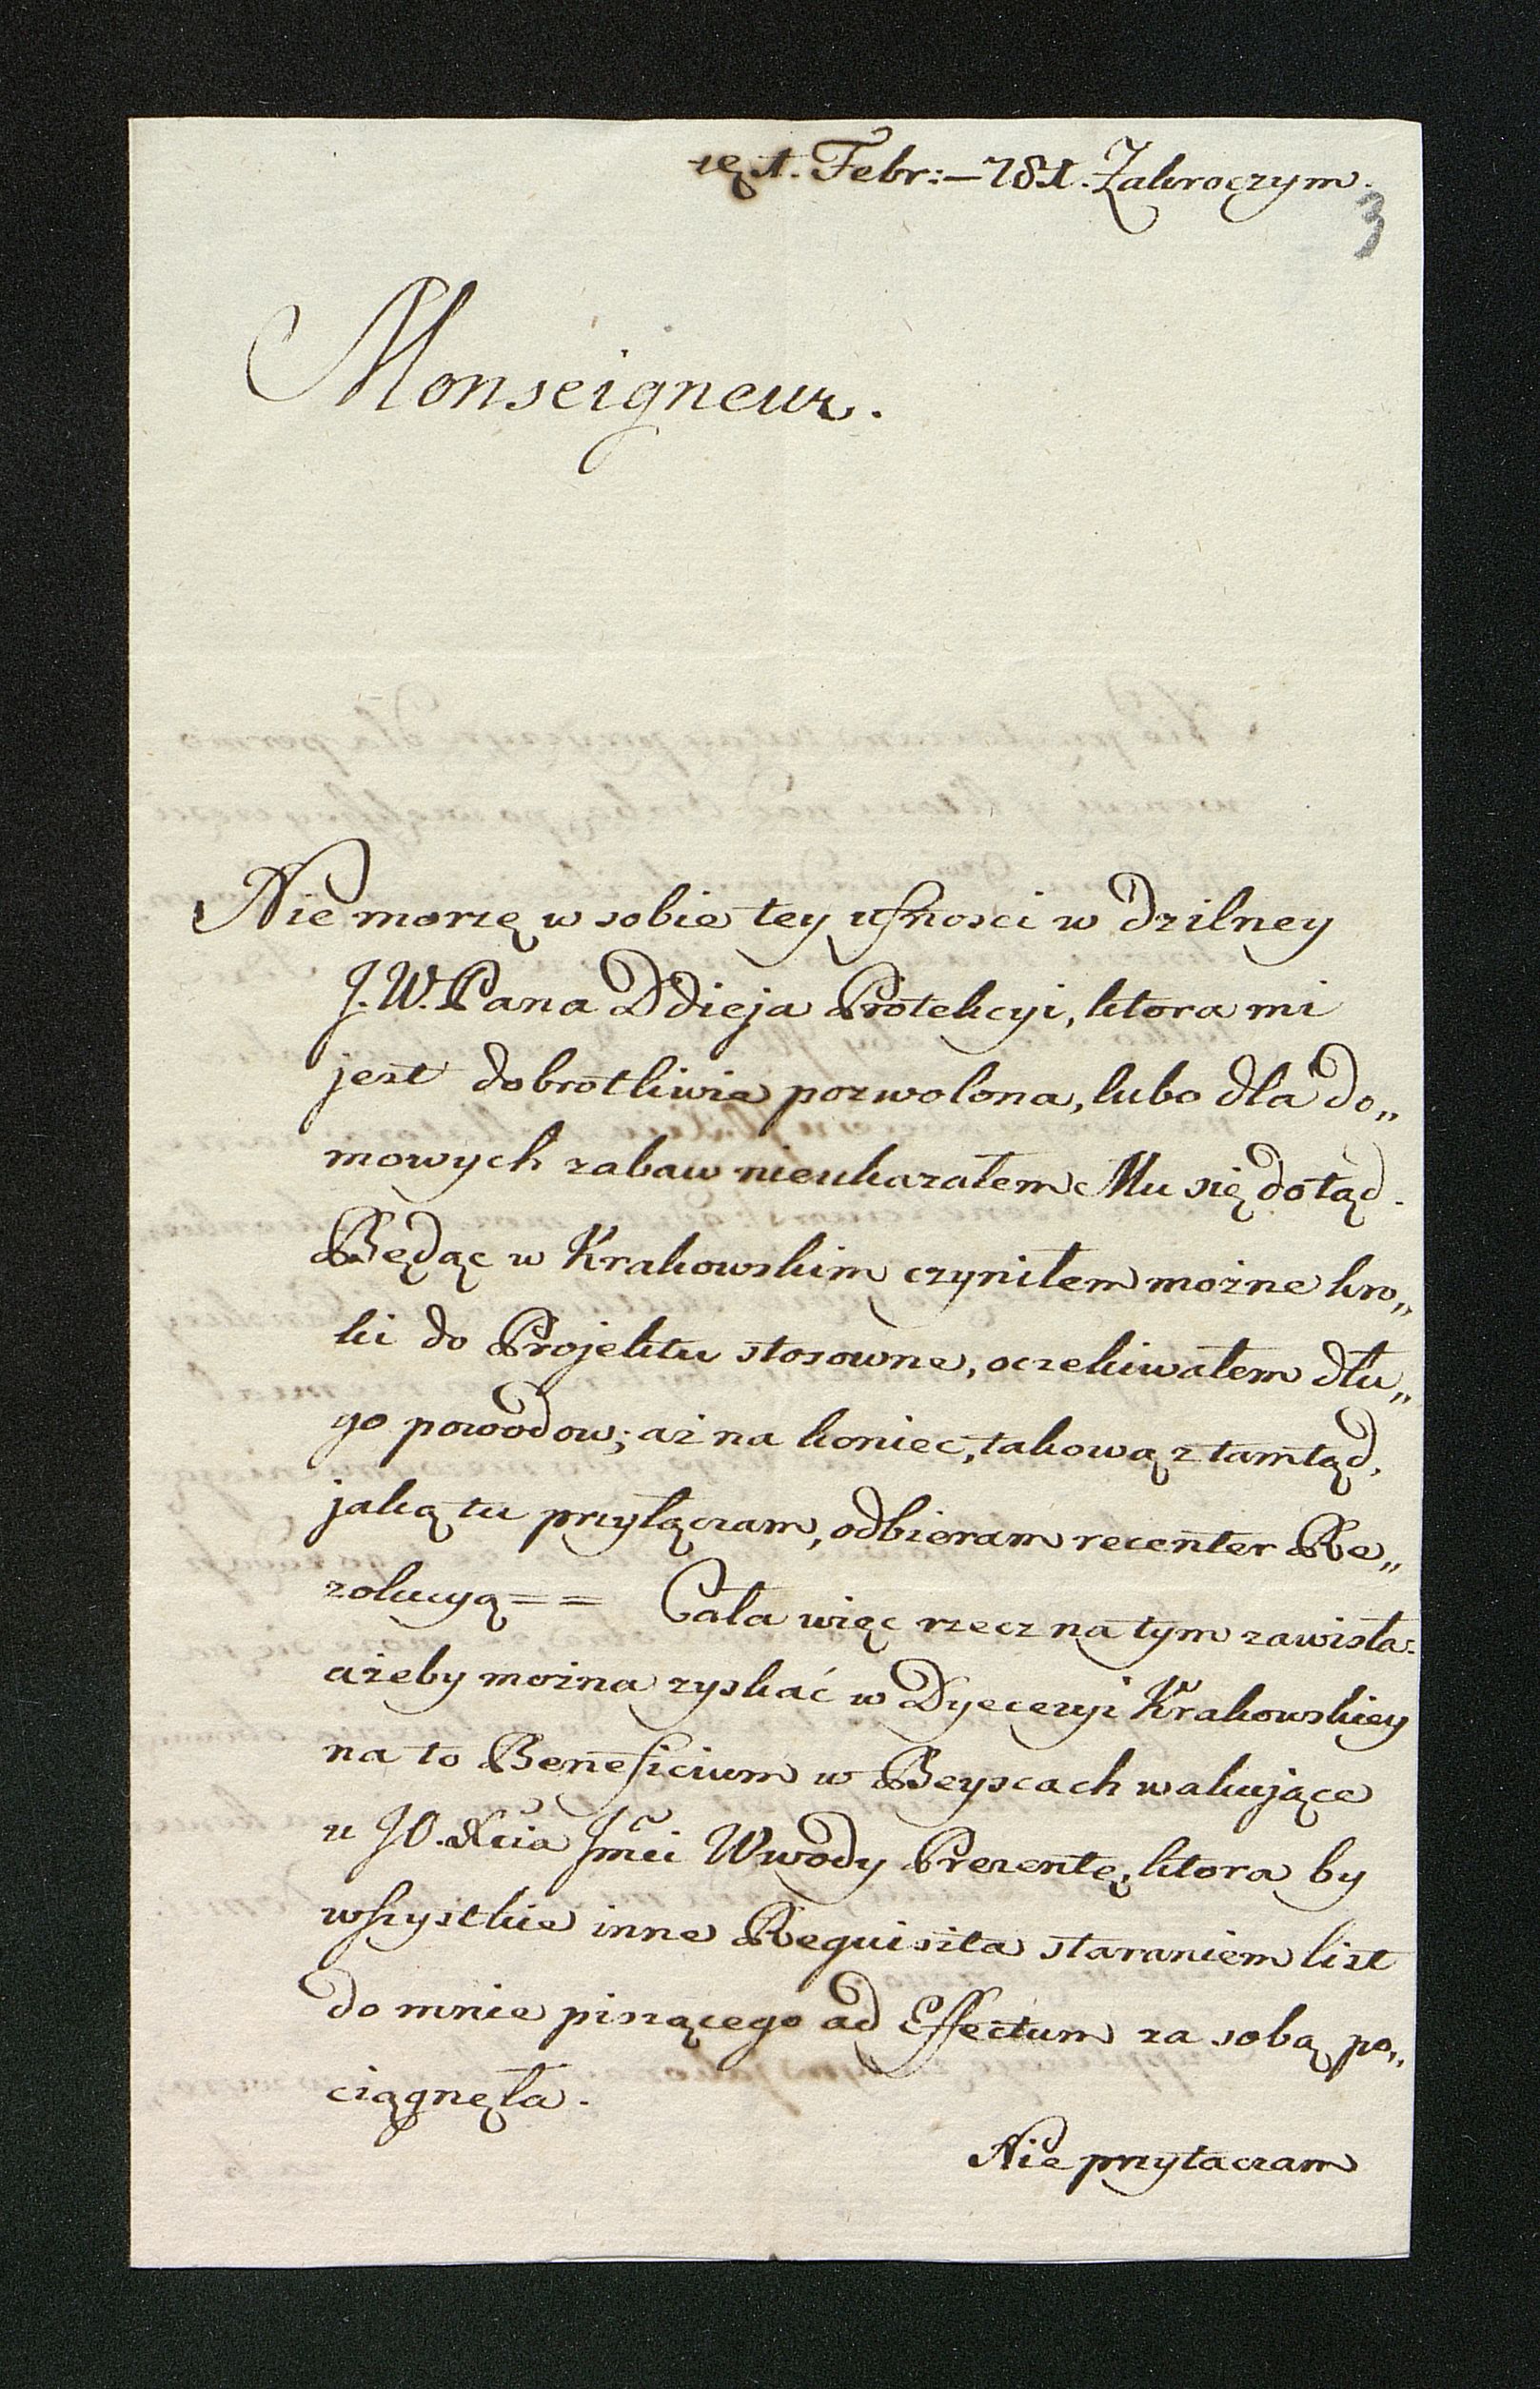 1. Febr: – 781. Zakroczym.
3
Monseigneur.
Nie morzę w sobie tey ufnosci w dzilney
J. W. Pana Ddieja Protekcyi, ktora mi
jest dobrotliwie pozwolona, lubo dla do„
mowych zabaw nieukazałem Mu się dotąd.
Będąc w Krakowskim czyniłem możne kro„
ki do Projektu stosowne, oczekiwałem dłu„
go powodow; aż na koniec, takową z tamtąd,
jaką tu przyłączam, odbieram recenter Re„
zolucyą = = Cała więc rzecz na tym zawisła:
ażeby można zyskać w Dyecezyi Krakowskiey
na to Beneficium w Beyscach wakujące
u JO. Xcia Jmci Wwody Prezentę, ktora by
wszystkie inne Requisita staraniem list
do mnie piszącego ad Effectum za sobą po„
ciągnęła.
Nie przytaczam